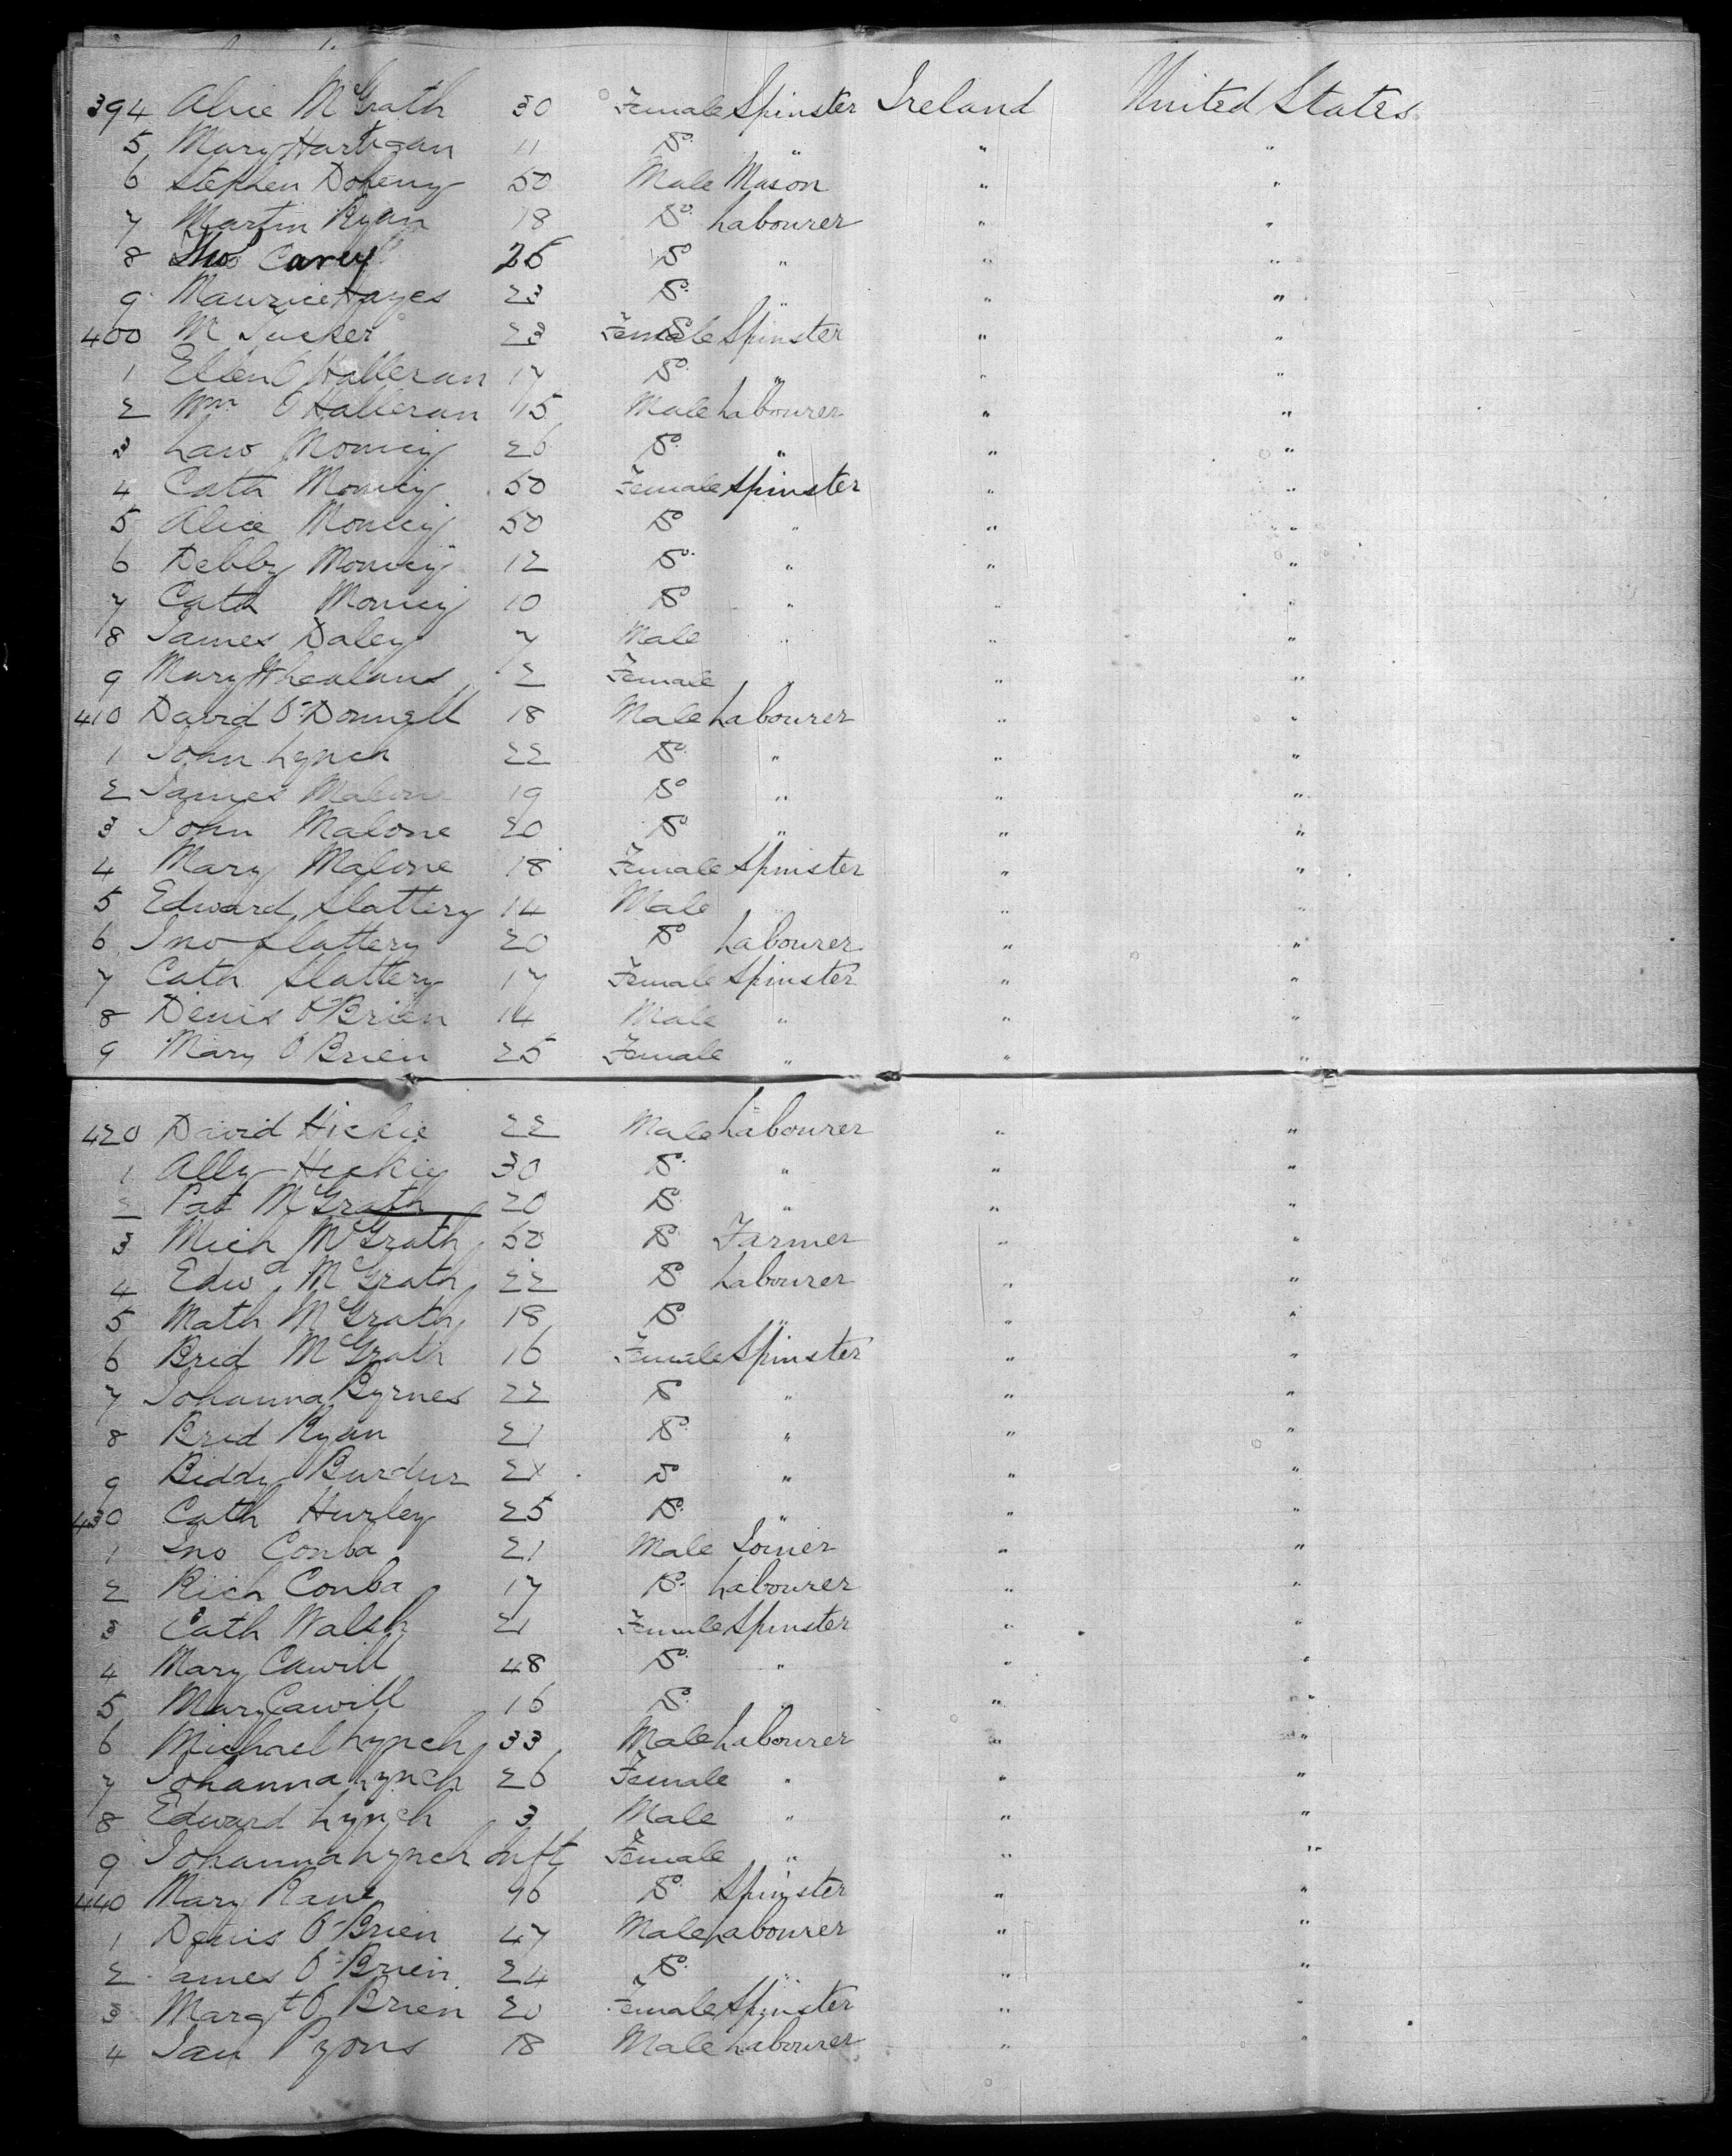 394 Alice McGrath 30 Female Spinster Ireland United States
5 Mary Hartigan 11 Do " " "
6 Stephen Doheny 50 Male Mason " "
7 Martin Ryan 18 Do Labourer " "
8 Thos Carey 25 Do " " "
9 Maurice Hayes 23 Do " " "
400 M Tucker 23 Female Spinster " "
1 Ellen O'Halleran 17 Do " " "
2 Wm O'Halleran 15 Male Labourer " "
3 Law 26 Do " " "
4 Cath 50 Female Spinster " "
5 Alice 50 Do " " "
6 Debby 12 Do " " "
7 Cath 10 Do " " "
8 James Daley 7 Male " " "
9 Mary Whealans 2 Female " " "
410 David O'Donnell 18 Male Labourer " "
1 John Lynch 22 Do " " "
2 James Malone 19 Do " " "
3 John Malone 20 Do " " "
4 Mary Malone 18 Female Spinster " "
5 Edward Slattery 14 Male " " "
6 Jno Slattery 20 Do Labourer " "
7 Cath Slattery 17 Female Spinster " "
8 Denis O'Brien 14 Male " " "
9 Mary O'Brien 25 Female " " "
420 David Hickie 22 Male Labourer " "
1 Ally Hickie 30 Do " " "
2 Pat McGrath 20 Do " " "
3 Mich McGrath 50 Do Farmer " "
4 Edwd McGrath 22 Do Labourer " "
5 Math McGrath 18 Do " " "
6 Brid McGrath 16 Female Spinster " "
7 Johanna Byrnes 22 Do " " "
8 Brid Ryan 21 Do " " "
9 Biddy 21 Do " " "
430 Cath Hurley 25 Do " " "
1 Jno Conba 21 Male Joiner " "
2 Rich Conba 17 Do Labourer " "
3 Cath Walsh 21 Female Spinster " "
4 Mary Cawill 48 Do " " "
5 Mary Cawill 16 Do " " "
6 Michael Lynch 33 Male Labourer " "
7 Johanna Lynch 26 Female " " "
8 Edward Lynch 3 Male " " "
9 Johanna Lynch Inft Female " " "
440 Mary 16 Do Spinster " "
1 Denis O'Brien 47 Male Labourer " "
2 ames O'Brien 24 Do " " "
3 Margt O'Brien 20 Female Spinster " "
4 18 Male Labourer " "